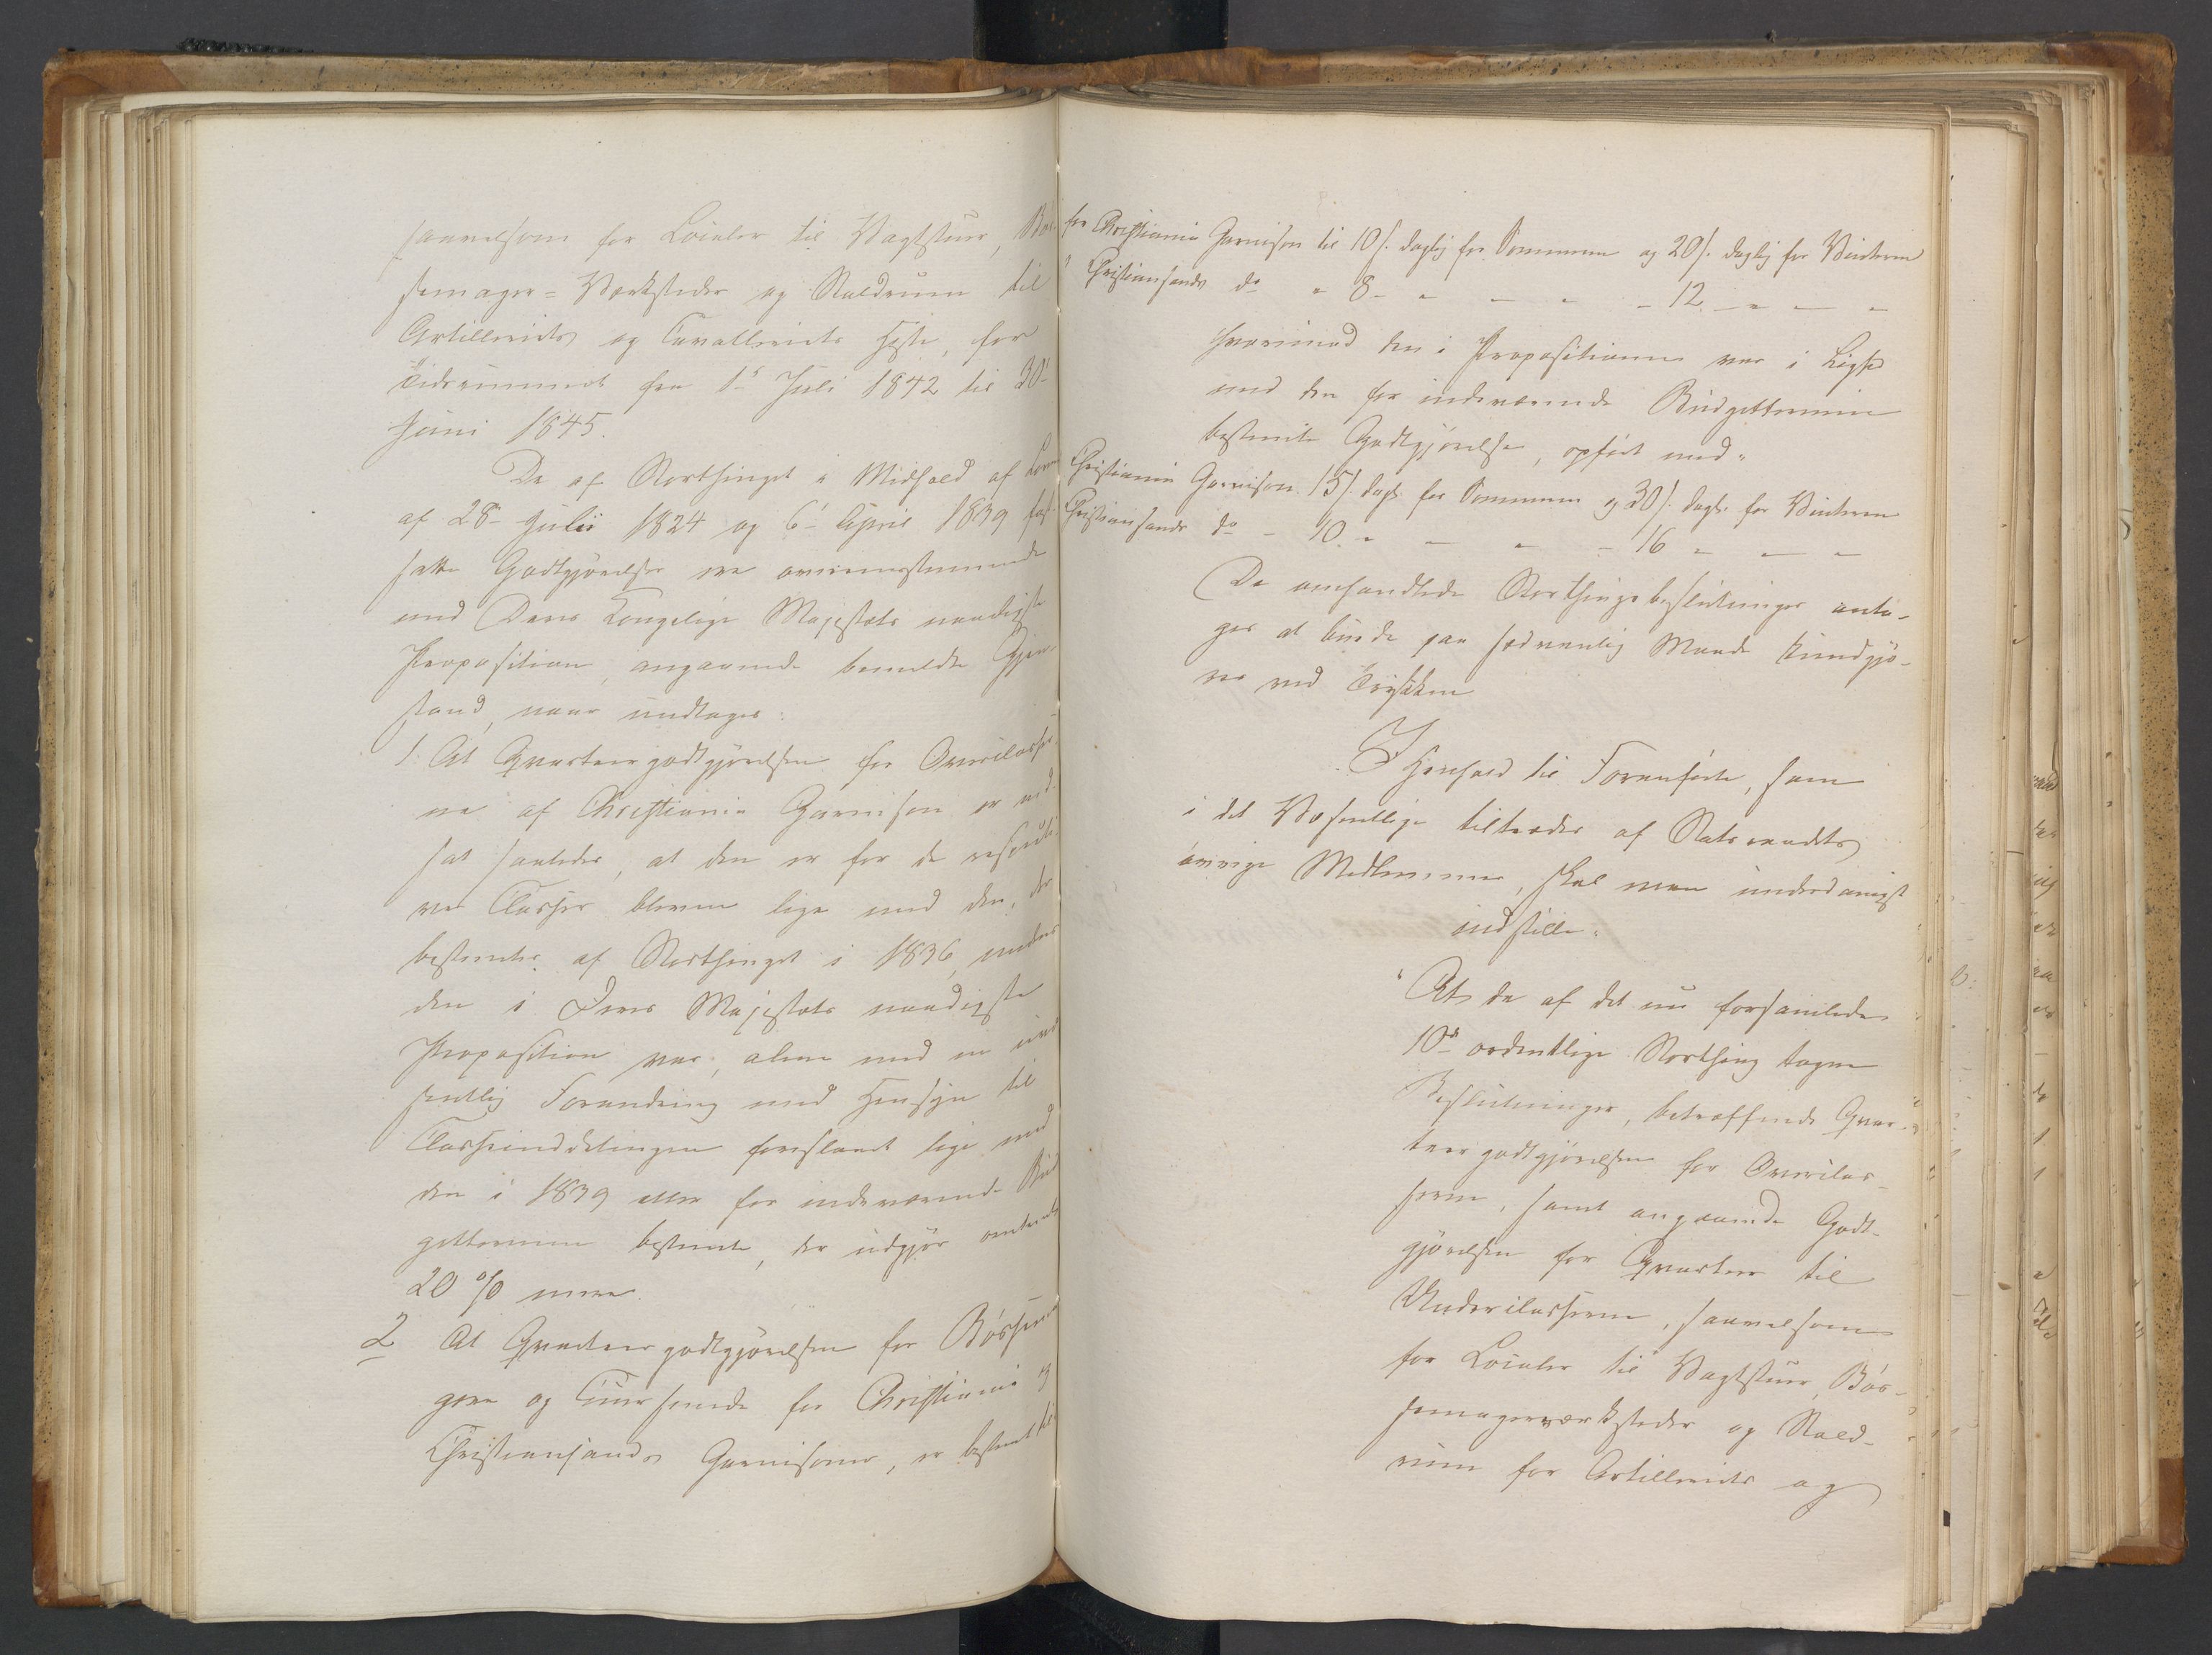 saavelsom for Localer til Vagtstuer, Bös-
semager-Værksteder og Staldrum til
Artilleriets og Cavalleriets Heste, for
Tidsrummet fra 1ste Juli 1842 til 30te
Juni 1845.
De af Storthinget i Medhold af Lovene
af 28de Julii 1824 og 6te April 1839 fast-
satte Godtgjörelser ere overeensstemmende
med Deres Kongelige Majestæts naadigste
Proposition, angaaende bemeldte Gjen-
stand, naar undtages:
1. At Qvarteergodtgjörelsen for Overclasser-
ne af Christiania Garnison er ned-
sat saaledes, at den er for de respecti-
ve Classer bleven lige med den, der
bestemtes af Storthinget i 1836, meden
den i Deres Majestæts naadigste
Proposition var, alene med en uvæ-
sentlig Forandring med Hensyn til
Classeinddelingen foreslaaet lige med
den i 1839 eller for indeværende Bud-
gettermin bestemte, der udgjör omtrent
20 % mere.
2 At Qvarteergodtgjörelsen for Bössema-
gere og Cuursmede for Christiania og
Christiansands Garnisoner, er bestemt til
for Christiania Garnison til 10 s. daglig for Sommeren og 20 s. daglig for Vinteren
Christiansands do " 8 - " - " - 12 - " - "
hvorimod den i Propositionen var i Lighed
med den for indeværende Budgettermin
bestemte Godtgjörelse, opfört med:
Christiania Garnison 15 s. dagl. for Sommeren og 30 s. dagl. for Vinteren
Christiansands do - 10 " - " - 16 " - "
De omhandlede Storthingsbeslutninger anta-
ges at burde paa sædvanlig Maade kundgjö-
res ved Trykken
I Henhold til Foranförte, som
i det Væsentlige tiltrædes af Statsraadets
övrige Medlemmer, skal man underdanigst
indstille:
"At de af det nu forsamlede
10de ordentlige Storthing tagne
Beslutninger, betræffende Qvar-
teergodtgjörelsen for Overclas-
serne, samt angaaende Godt-
gjörelsen for Qvarteer til
Underclasserne, saavelsom
for Localer til Vagtstuer, Bös-
semagerværksteder og Stald-
rum for Artilleriets og